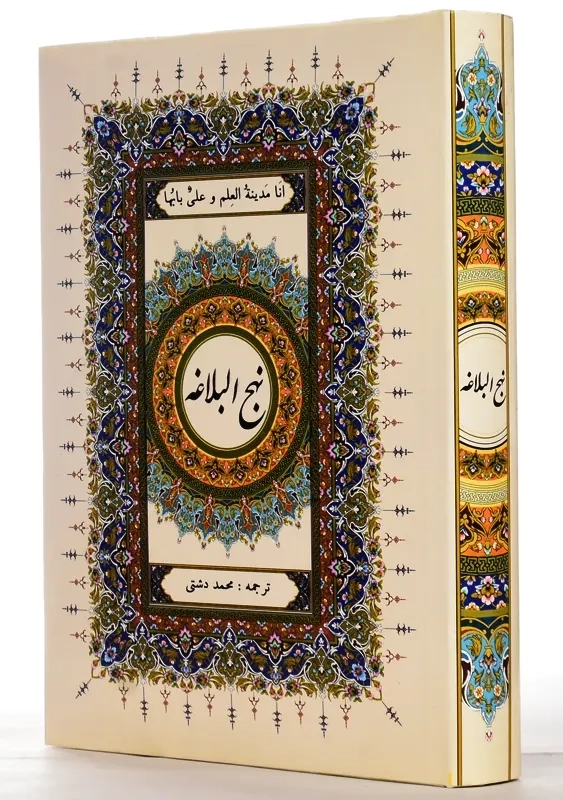 انا مَدینةُ العِلم و علیٌ بابُها
نهج البلاغه
ترجمه : محمد دشتی
نهج البلاغه